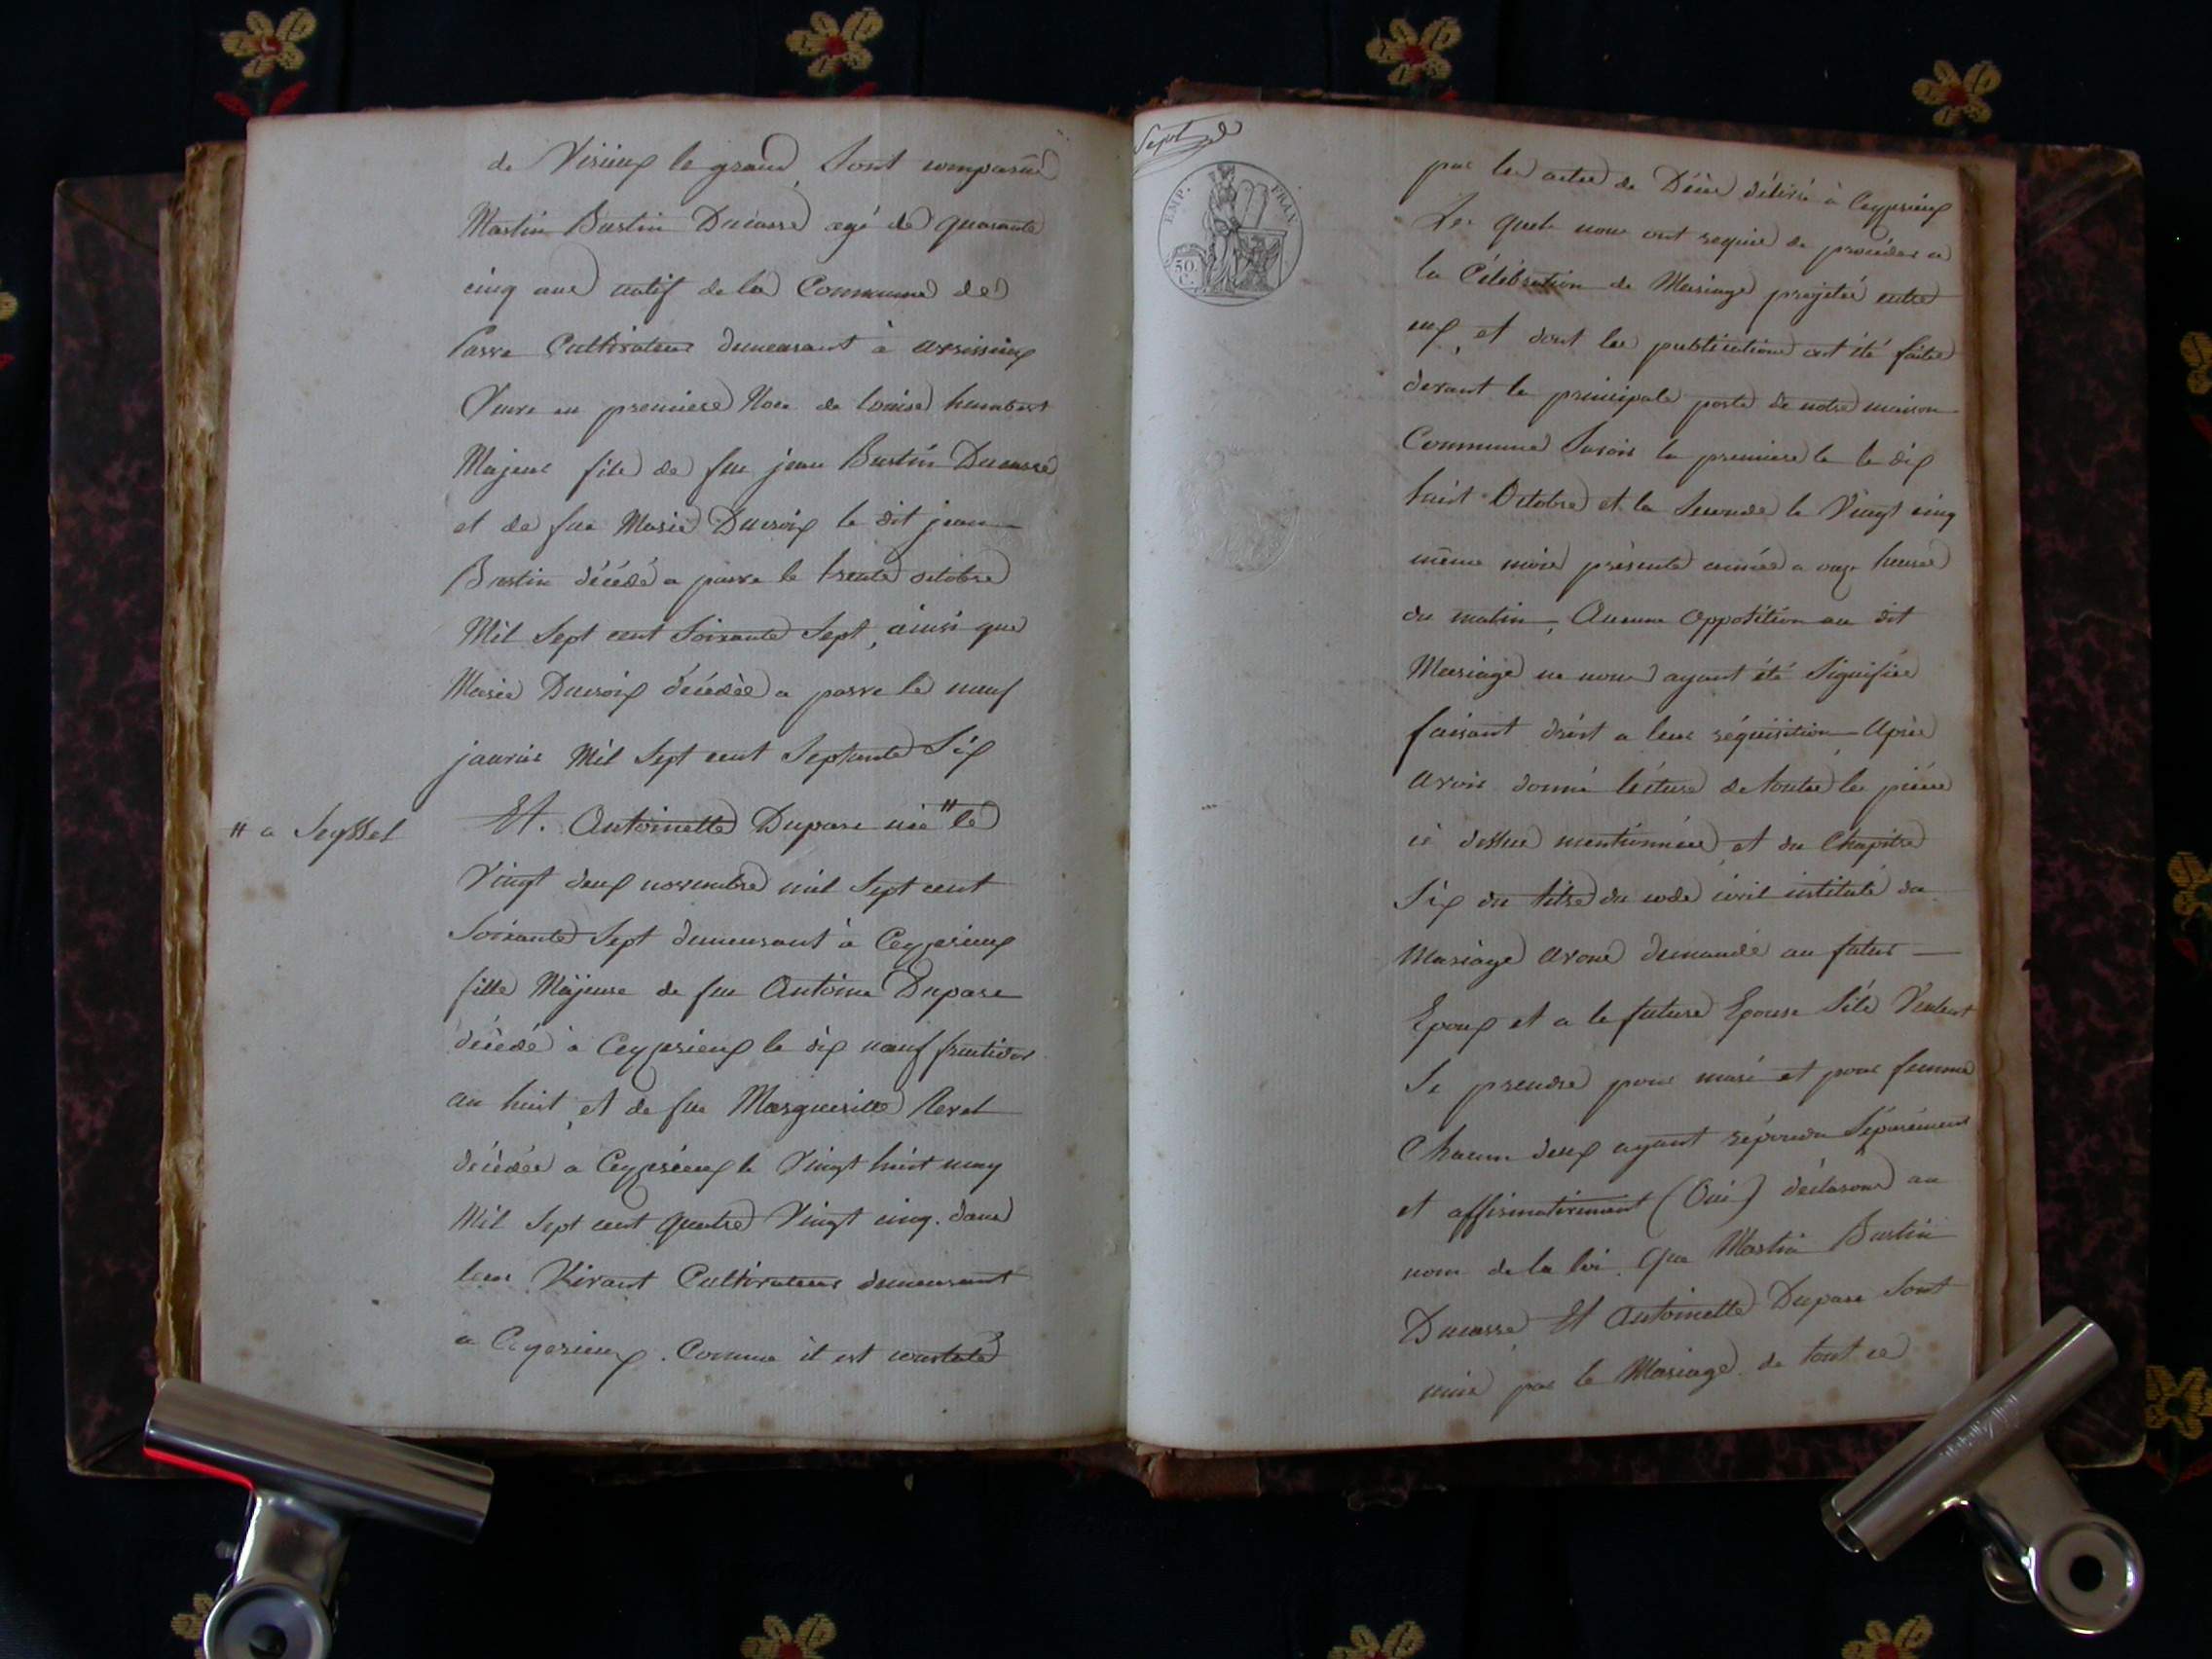 de Virieux le grand, Sont comparus
Martin Bustin Ducarre agé de quarante
cinq ans natif de la Commune de
Parve Cultivateur demeurant à arvissieux
Veuve en premiere Noce de louise humbert
Majeur fils de feu jean Bustin Ducarre
et de feue Marie Ducroix le dit jean
Bustin décédé a parve le trente octobre
Mil Sept cent Soixante Sept, ainsi que
Marie Ducroix décédée a parve le neuf
janvier Mil Sept cent Septante Six
Et. Antoinette Dupare née " le
" a Seyssel
Vingt deux novembre mil Sept cent
Soixante Sept demeurant à Ceyzerieux
fille Majeure de feu Antoine Dupare
décédé à Ceyzerieux le dix neuf fructidor
an huit, et de feue Marguerite Revel
décédée a Ceyzérieux le Vingt huit may
Mil Sept cent quatre Vingt cinq. dans
leur Vivant Cultivateurs demeurant
a Ceyzerieux. Comme il est constaté
Sept
EMP. FRAN.
50 C.
par les actes de Décès délivré à Ceyzerieux
Les quels nous ont requis de procéder a
la Célébration de Mariage projetée entre
eux, et dont les publications ont été faites
devant la principale porte de notre maison
Commune Savoir la premiere le le dix
huit Octobre et la Seconde le Vingt cinq
même mois présente année a onze heures
du matin, Aucune Opposition au dit
Mariage ne nous ayant été Signifiée
faisant droit a leur réquisition Après
avoir donné lecture de toutes les pièces
ci dessus mentionnées, et du Chapitre
Six du titre du code civil intitulé du
Mariage avons demandé au futur
Epoux et a la future Epouse S'ils Veulent
Se prendre pour mari et pour femme
Chacun deux ayant répondu Séparément
et affirmativement (Oui) déclarons au
nom de la loi. Que Martin Bustin
Ducarre, Et Antoinette Dupare Sont
unis par le Mariage. de tout ce